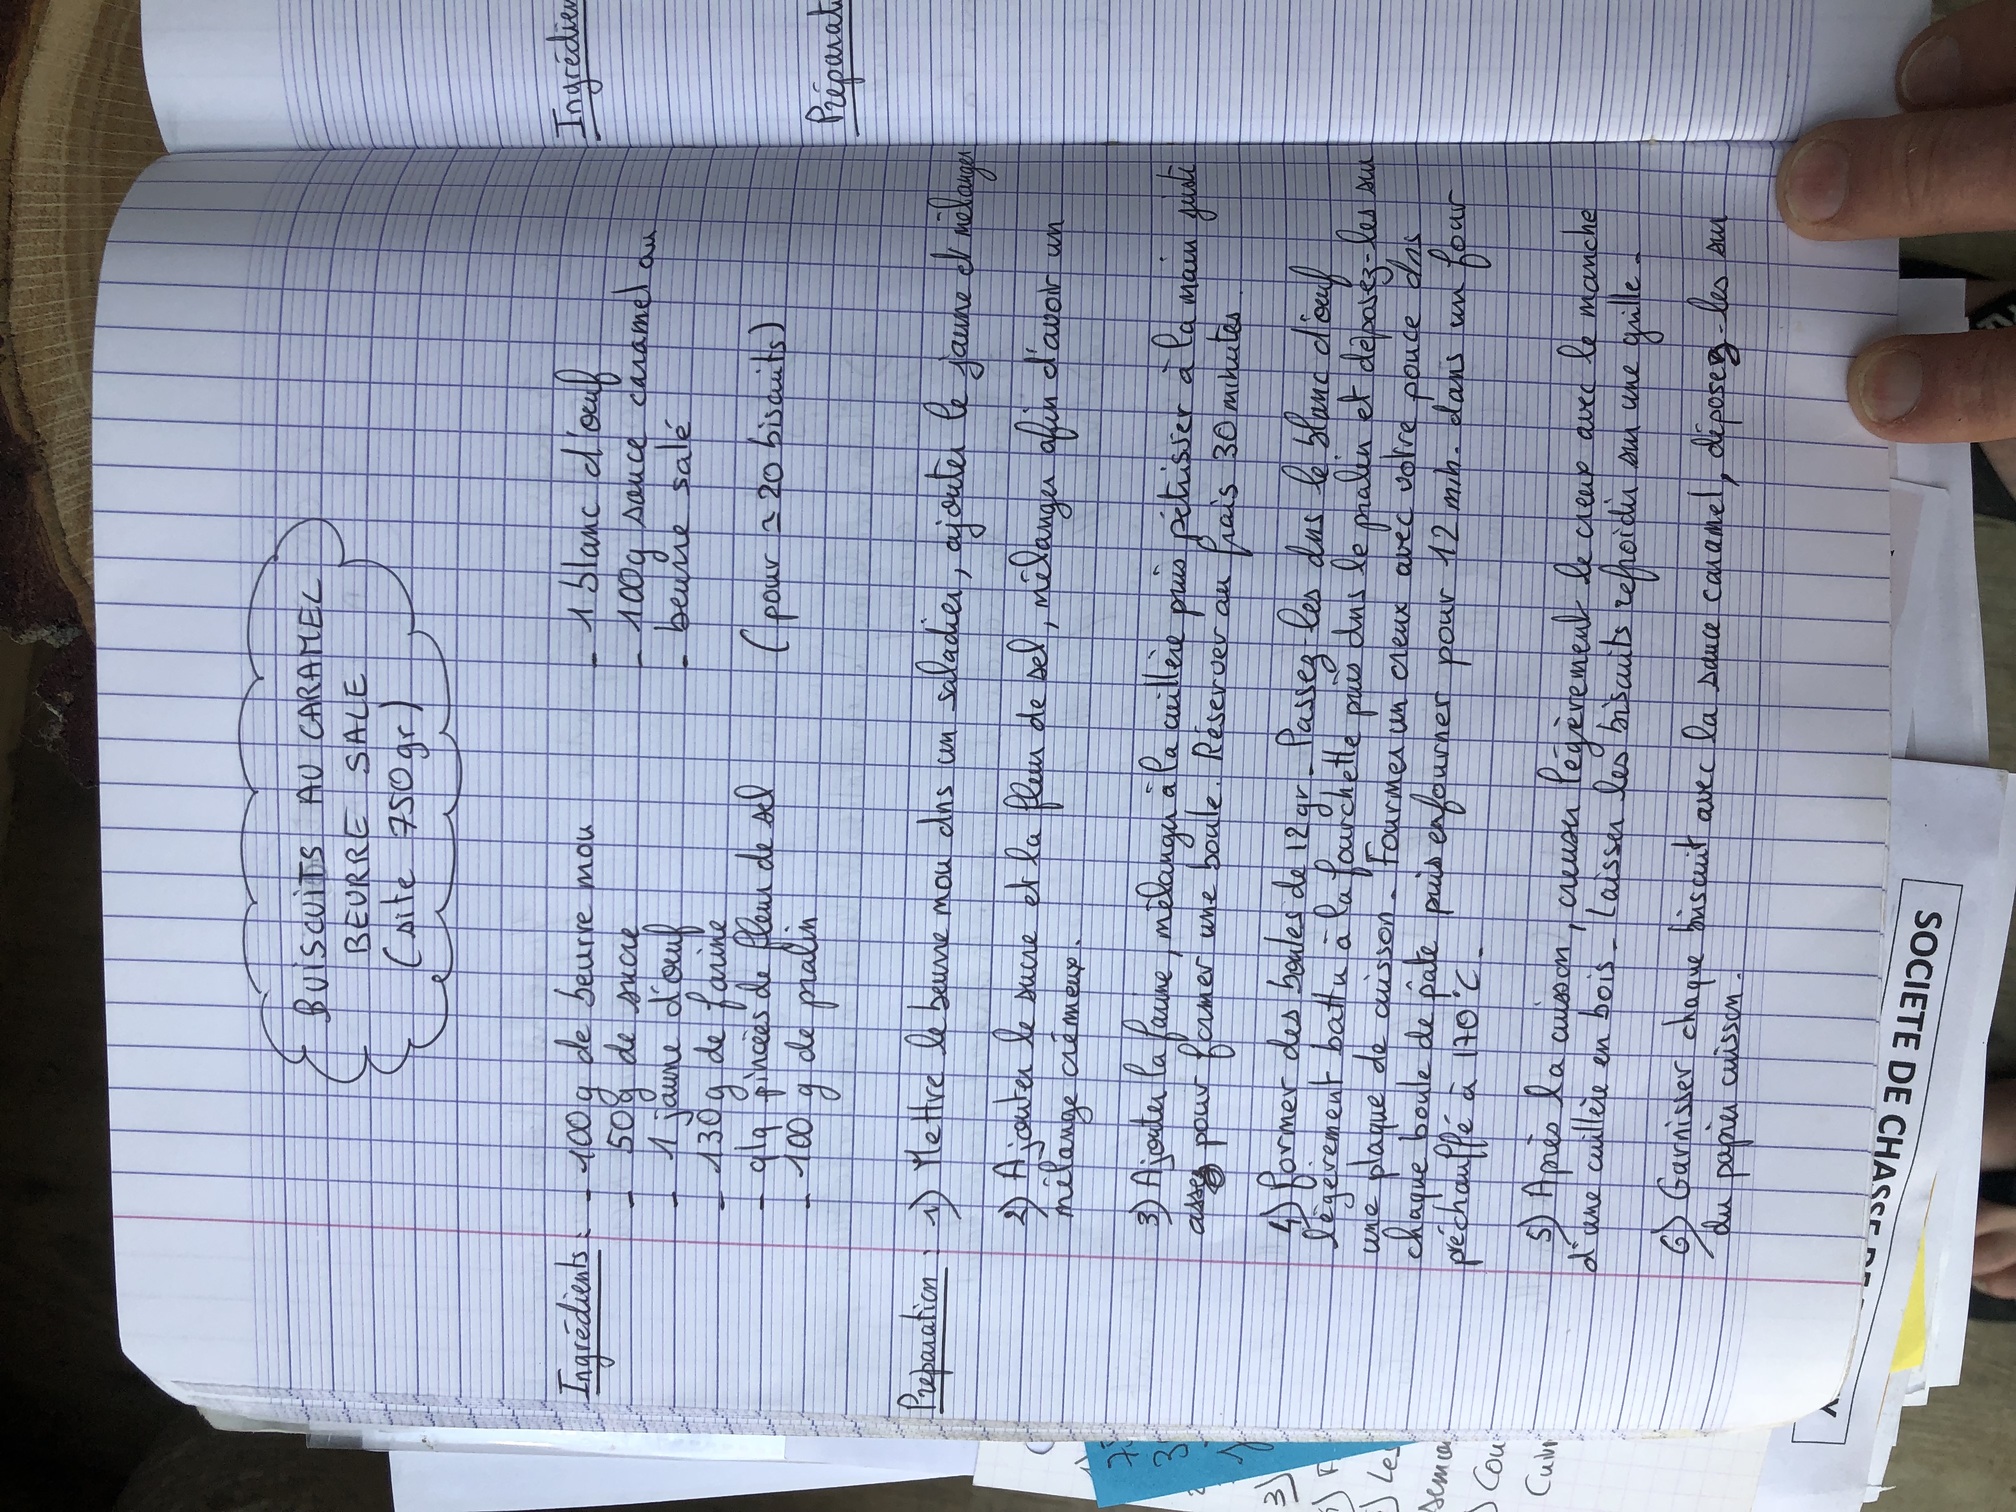 BUISCUITS AU CARAMEL
BEURRE SALE
(site 750gr)
Ingrédients : - 100g de beurre mou
- 50g de sucre
- 1 jaune d'oeuf
- 130g de farine
- qlq pincées de fleur de sel
- 100 g de pralin
- 1 blanc d'oeuf
- 100g sauce caramel au
- beurre salé
(pour ≃ 20 biscuits)
Préparation : 1) Mettre le beurre mou dns un saladier, ajouter le jaune et mélanger
2) Ajouter le sucre et la fleur de sel, mélanger afin d'avoir un
mélange crémeux.
3) Ajouter la farine, mélanger à la cuillère puis pétrisser à la main juste
assez pour former une boule. Réserver au frais 30 minutes.
4) former des boules de 12gr - Passez-les dns le blanc d'oeuf
légèrement battu à la fourchette puis dns le pralin et déposez-les sur
une plaque de cuisson - Fourmer un creux avec votre pouce dns
chaque boule de pâte puis enfourner pour 12 min. dans un four
préchauffé à 170°C.
5) Après la cuisson, creuser légèrement le creux avec le manche
d'une cuillère en bois - Laisser les biscuits refroidir sur une grille.
6) Garnisser chaque biscuit avec la sauce caramel, déposez-les sur
du papier cuisson.
Ingrédien
Préparati
SOCIETE DE CHASSE DE
Y
3)
Les
Cou